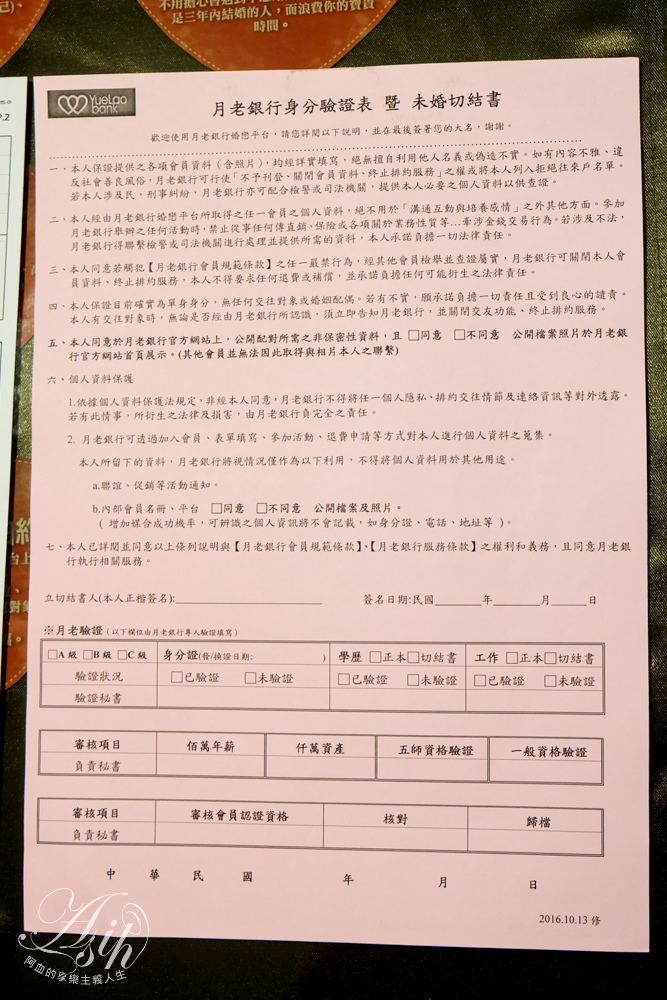 不用擔心會遇到不
是三年內結婚的人，而浪費你的寶貴
時間。
P.2
YueLao
bank
月老銀行身分驗證表 暨 未婚切結書
歡迎使用月老銀行婚戀平台，請您詳閱以下說明，並在最後簽署您的大名，謝謝。
一、本人保證提供之各項會員資料（含照片），均經詳實填寫，絕無擅自利用他人名義或偽造不實。如有內容不雅、違
反社會善良風俗，月老銀行可行使「不予刊登、關閉會員資料、終止排約服務」之權或將本人列入拒絕往來戶名單。
若本人涉及民、刑事糾紛，月老銀行亦可配合檢警或司法機關，提供本人必要之個人資料以供查證。
二、本人經由月老銀行婚戀平台所取得之任一會員之個人資料，絕不用於「溝通互動與培養感情」之外其他方面。參加
月老銀行舉辦之任何活動時，禁止從事任何傳直銷、保險或各項關於業務性質等…牽涉金錢交易行為。若涉及不法，
月老銀行得聯繫檢警或司法機關進行處理並提供所需的資料，本人承諾負擔一切法律責任。
三、本人同意若觸犯【月老銀行會員規範條款】之任一嚴禁行為，經其他會員檢舉並查證屬實，月老銀行可關閉本人會
員資料、終止排約服務，本人不得要求任何退費或補償，並承諾負擔任何可能衍生之法律責任。
四、本人保證目前確實為單身身分，無任何交往對象或婚姻配偶。若有不實，願承諾負擔一切責任且受到良心的譴責。
本人有交往對象時，無論是否經由月老銀行所認識，須立即告知月老銀行，並關閉交友功能、終止排約服務。
五、本人同意於月老銀行官方網站上，公開配對所需之非保密性資料，且 □同意 □不同意 公開檔案照片於月老銀
行官方網站首頁展示。(其他會員並無法因此取得與相片本人之聯繫)
六、個人資料保護
1.依據個人資料保護法規定，非經本人同意，月老銀行不得將任一個人隱私、排約交往情節及連絡資訊等對外透露。
若有此情事，所衍生之法律及損害，由月老銀行負完全之責任。
2. 月老銀行可透過加入會員、表單填寫、參加活動、退費申請等方式對本人進行個人資料之蒐集。
本人所留下的資料，月老銀行將視情況僅作為以下利用，不得將個人資料用於其他用途。
a.聯誼、促銷等活動通知。
b.內部會員名冊、平台 □同意 □不同意 公開檔案及照片。
( 增加媒合成功機率，可辨識之個人資訊將不會記載，如身分證、電話、地址等 )。
七、本人已詳閱並同意以上條列說明與【月老銀行會員規範條款】、【月老銀行服務條款】之權利和義務，且同意月老銀
行執行相關服務。
立切結書人(本人正楷簽名):____________________ 簽名日期:民國______年______月_____日
※月老驗證（以下欄位由月老銀行專人驗證填寫）
□A 級 □B 級 □C 級 身分證(發/換證日期: ) 學歷 □正本□切結書 工作 □正本□切結書
驗證狀況 □已驗證 □未驗證 □已驗證 □未驗證 □已驗證 □未驗證
驗證秘書
審核項目 佰萬年薪 仟萬資產 五師資格驗證 一般資格驗證
負責秘書
審核項目 審核會員認證資格 核對 歸檔
負責秘書
中 華 民 國 年 月 日
2016.10.13 修
Asih
阿血的享樂主義人生